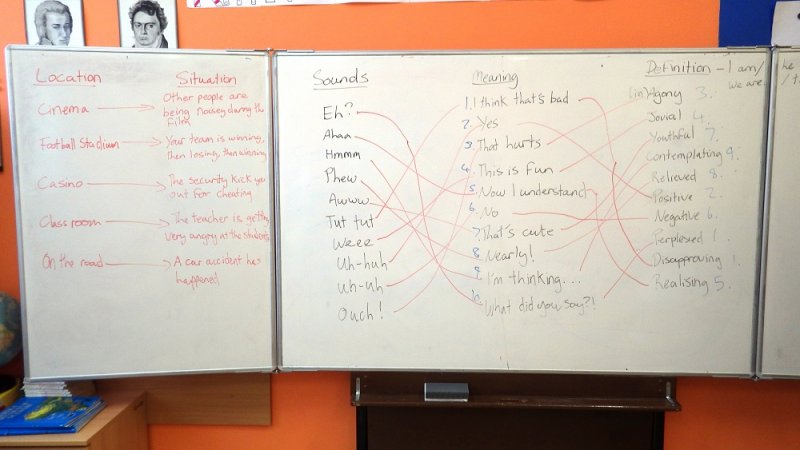 Location
Situation
Cinema
Other people are
being noisey during the
film
Football Stadium
Your team is winning,
then losing, then winning
Casino
The security kick you
out for cheating
Classroom
The teacher is getting
very angry at the students
On the road
A car accident has
happened
Sounds
Eh?
Ahaa
Hmmm
Phew
Awww
Tut tut
Weee
Uh-huh
Uh-uh
Ouch!
Meaning
1. I think that's bad
2. Yes
3. That hurts
4. This is fun
5. Now I understand
6. No
7. That's cute
8. Nearly!
9. I'm thinking...
10. What did you say?!
Definition - I am/
we are
(in) Agony 3.
Jovial 4.
Youthful 7.
Contemplating 9.
Relieved 8.
Positive 2.
Negative 6.
Perplexed 1.
Disapproving 1.
Realising 5.
he